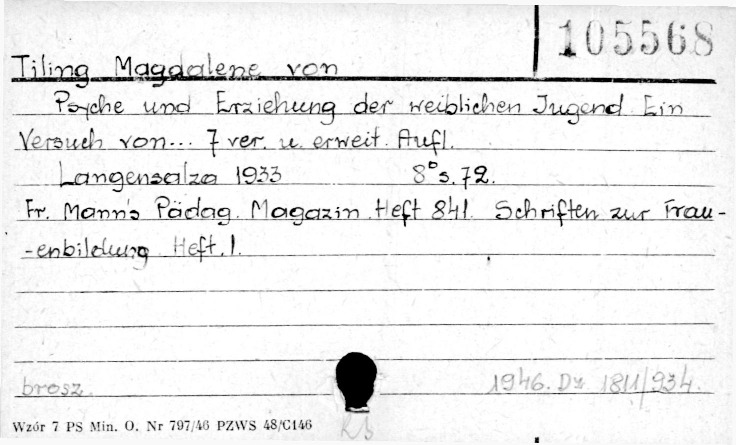 105568
Tiling Magdalene von
Psyche und Erziehung der weiblichen Jugend Ein
Versuch von... 7 ver. u. erweit. Aufl.
Langensalza 1933 8° s. 72.
Fr. Mann's Pädag. Magazin. Heft 841. Schriften zur Frau-
-enbildung Heft. 1.
brosz. 1946. Dz 1811/934.
Wzór 7 PS Min. O. Nr 797/46 PZWS 48/C146